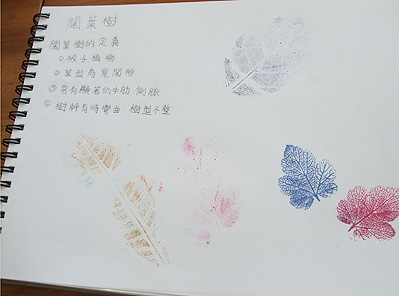 闊葉樹
闊葉樹的定義
①被子植物
②葉型為寬闊臉
③常有顯著的中肋、側脈
④樹幹有時彎曲 樹型不整